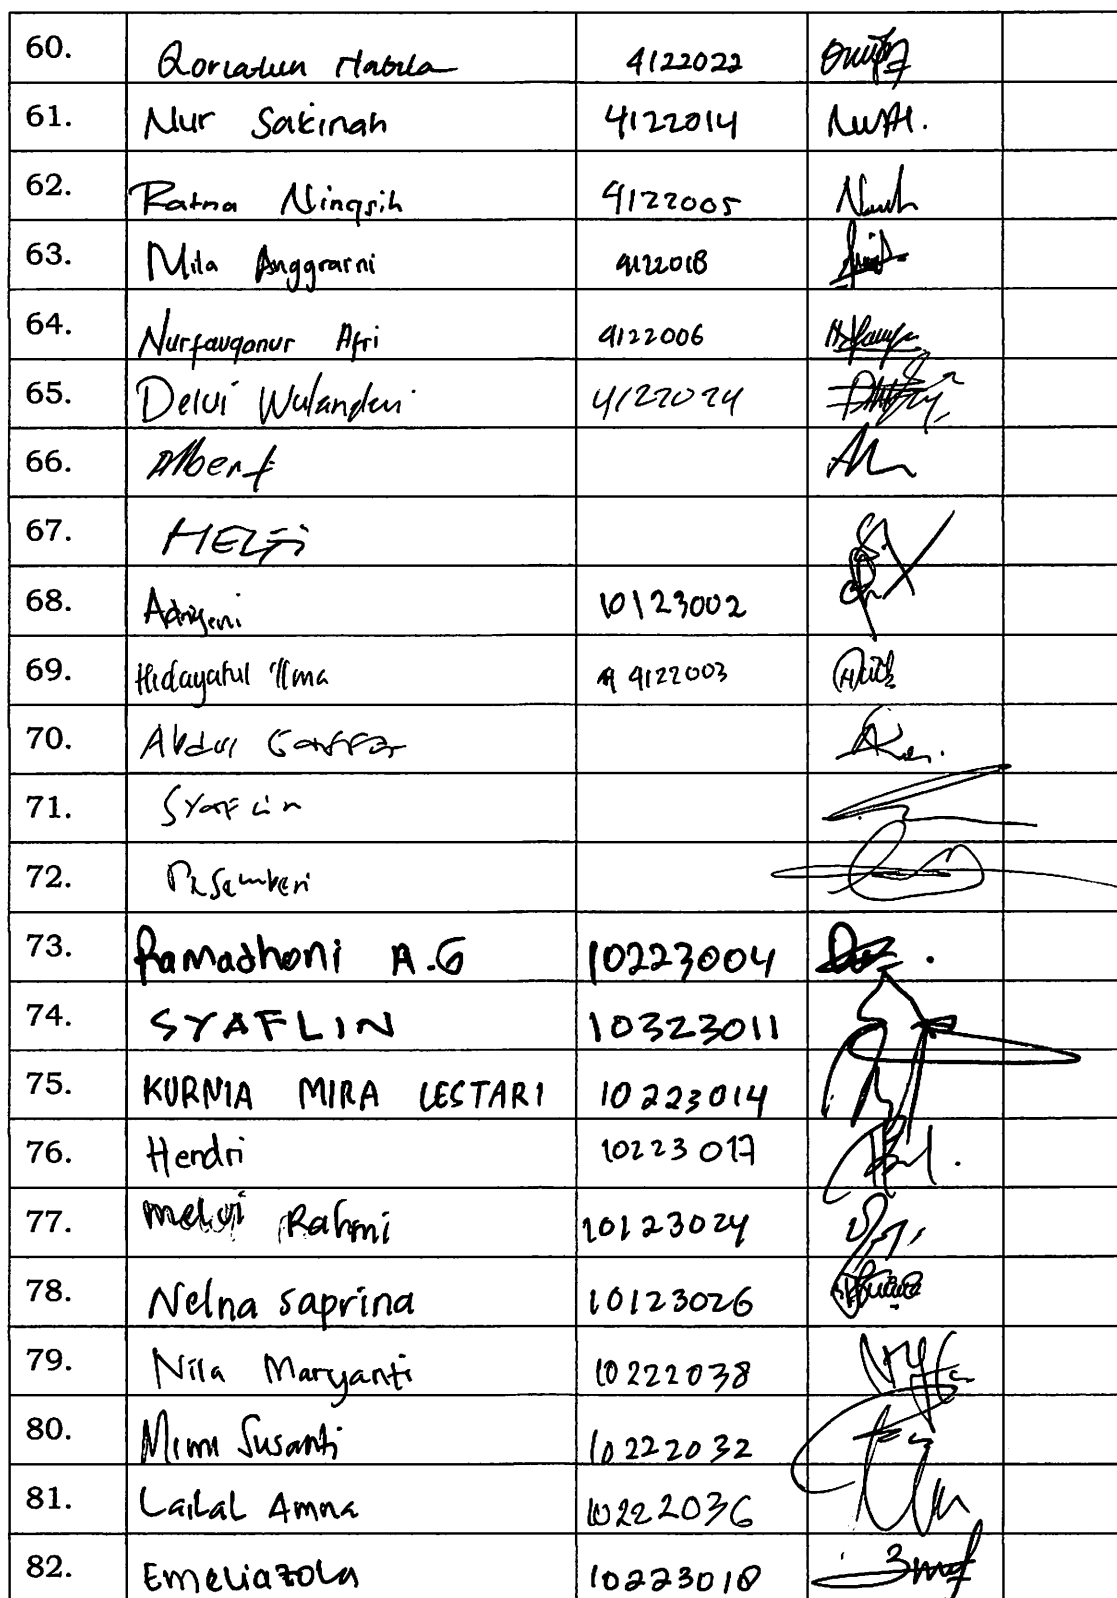 60. Qoriatun Nabila 4122022
61. Nur Sakinah 4122014
62. Ratna Ningsih 4122005
63. Mila Anggraini 4122018
64. Nurfauqanur Afri 4122006
65. Delvi Wulandari 4122024
66. Albert
67. HELFi
68. Adriyeni 10123002
69. Hidayatul Ilma 4122003
70. Abdul Gaffar
71. Syaflin
72.
73. Ramadhoni A.G 10223004
74. SYAFLIN 10323011
75. KURNIA MIRA LESTARI 10223014
76. Hendri 10223017
77. melvi Rahmi 10123024
78. Nelna saprina 10123026
79. Nila Maryanti 10222038
80. Mimi Susanti 10222032
81. Lailal Amna 10222036
82. Emeliazola 10223018